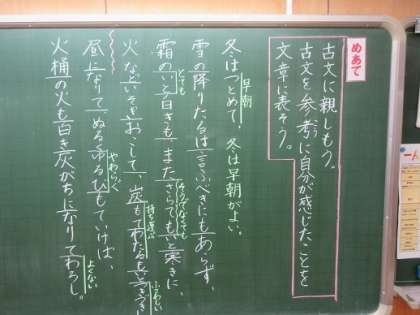 めあて
古文に親しもう。
古文を参考に自分が感じたことを
文章に表そう。
冬はつとめて、冬は早朝がよい。
早朝
雪の降りたるは言ふべきにもあらず、
霜のいと白きも、またさらでもいと寒きに、
とても
そうでなくても
火などいそぎおこして、炭もてわたるもいとつきづきし
持ち運ぶ
ふさわしい
昼になりて、ぬるくゆるびもていけば、
やわらぐ
火桶の火も白き灰がちになりてわろし。
よくない